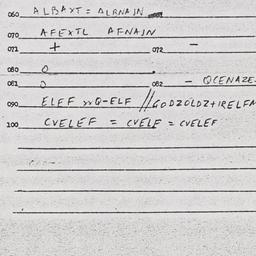 060 ALBAXT = ALRNAJN
070 AFEXTL AFNAJN
071 + 072 -
080 0
081 0 082 - QCENAZE
090 ELEF >> Q-ELF // GODZOLDZ+IRELFA
100 CVELEF = CVELF = CVELEF